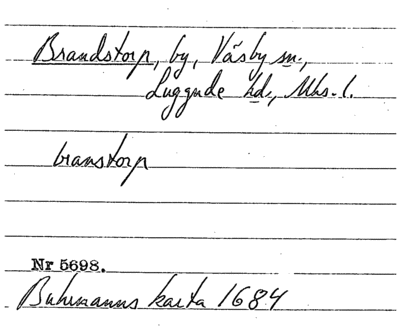 Brandstorp, by, Väsby sn.,
Luggude hd., Mhs. l.
branstorp
Nr 5698.
Buhrmanns karta 1684